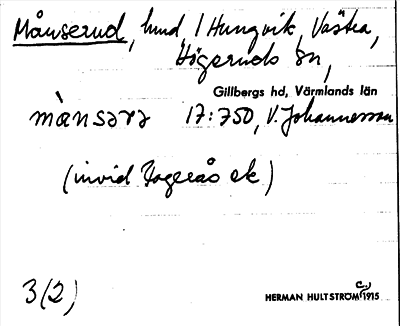 Månserud, hmd i Hungvik, Västra,
Högeruds sn,
Gillbergs hd, Värmlands län
mànsərə 17:750, V. Johannesson
(invid ek)
3(2)
HERMAN HULTSTRÖM 1915